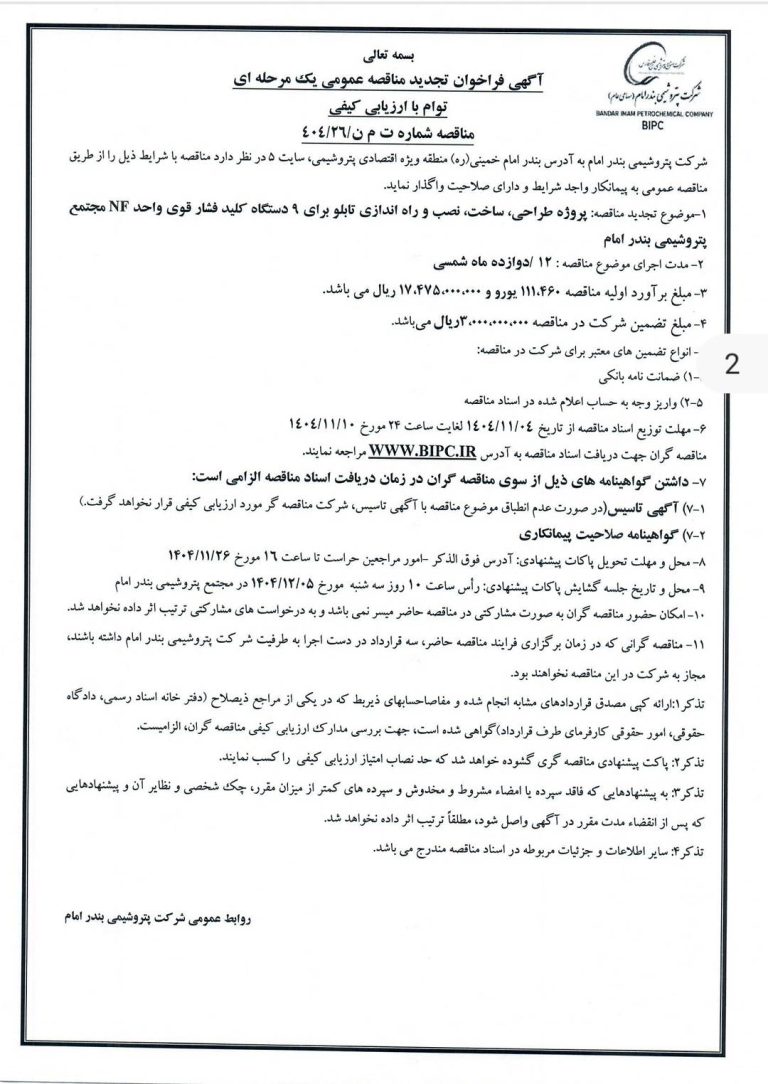 شرکت پتروشیمی بندر امام (سهامی عام)
BANDAR IMAM PETROCHEMICAL COMPANY
BIPC
بسمه تعالی
آگهی فراخوان تجدید مناقصه عمومی یک مرحله ای
توام با ارزیابی کیفی
مناقصه شماره ت م ن/۴۰۴/۲۶
شرکت پتروشیمی بندر امام به آدرس بندر امام خمینی(ره) منطقه ویژه اقتصادی پتروشیمی، سایت ۵ در نظر دارد مناقصه با شرایط ذیل را از طریق
مناقصه عمومی به پیمانکار واجد شرایط و دارای صلاحیت واگذار نماید.
۱-موضوع تجدید مناقصه: پروژه طراحی، ساخت، نصب و راه اندازی تابلو برای ۹ دستگاه کلید فشار قوی واحد NF مجتمع
پتروشیمی بندر امام
۲- مدت اجرای موضوع مناقصه : ۱۲ /دوازده ماه شمسی
۳- مبلغ برآورد اولیه مناقصه ۱۱۱،۴۶۰ یورو و ۱۷،۴۷۵،۰۰۰،۰۰۰ ریال می باشد.
۴- مبلغ تضمین شرکت در مناقصه ۳،۰۰۰،۰۰۰،۰۰۰ریال می‌باشد.
- انواع تضمین های معتبر برای شرکت در مناقصه:
-۱) ضمانت نامه بانکی
2
۵-۲) واریز وجه به حساب اعلام شده در اسناد مناقصه
۶- مهلت توزیع اسناد مناقصه از تاریخ ۱۴۰۴/۱۱/۰۴ لغایت ساعت ۲۴ مورخ ۱۴۰۴/۱۱/۱۰
مناقصه گران جهت دریافت اسناد مناقصه به آدرس WWW.BIPC.IR مراجعه نمایند.
۷- داشتن گواهینامه های ذیل از سوی مناقصه گران در زمان دریافت اسناد مناقصه الزامی است:
۷-۱) آگهی تاسیس(در صورت عدم انطباق موضوع مناقصه با آگهی تاسیس، شرکت مناقصه گر مورد ارزیابی کیفی قرار نخواهد گرفت.)
۷-۲) گواهینامه صلاحیت پیمانکاری
۸- محل و مهلت تحویل پاکات پیشنهادی: آدرس فوق الذکر -امور مراجعین حراست تا ساعت ۱۶ مورخ ۱۴۰۴/۱۱/۲۶
۹- محل و تاریخ جلسه گشایش پاکات پیشنهادی: رأس ساعت ۱۰ روز سه شنبه مورخ ۱۴۰۴/۱۲/۰۵ در مجتمع پتروشیمی بندر امام
۱۰- امکان حضور مناقصه گران به صورت مشارکتی در مناقصه حاضر میسر نمی باشد و به درخواست های مشارکتی ترتیب اثر داده نخواهد شد.
۱۱- مناقصه گرانی که در زمان برگزاری فرایند مناقصه حاضر، سه قرارداد در دست اجرا به طرفیت شر کت پتروشیمی بندر امام داشته باشند،
مجاز به شرکت در این مناقصه نخواهند بود.
تذکر۱:ارائه کپی مصدق قراردادهای مشابه انجام شده و مفاصاحسابهای ذیربط که در یکی از مراجع ذیصلاح (دفتر خانه اسناد رسمی، دادگاه
حقوقی، امور حقوقی کارفرمای طرف قرارداد)گواهی شده است، جهت بررسی مدارک ارزیابی کیفی مناقصه گران، الزامیست.
تذکر۲: پاکت پیشنهادی مناقصه گری گشوده خواهد شد که حد نصاب امتیاز ارزیابی کیفی را کسب نمایند.
تذکر۳: به پیشنهادهایی که فاقد سپرده یا امضاء مشروط و مخدوش و سپرده های کمتر از میزان مقرر، چک شخصی و نظایر آن و پیشنهادهایی
که پس از انقضاء مدت مقرر در آگهی واصل شود، مطلقاً ترتیب اثر داده نخواهد شد.
تذکر۴: سایر اطلاعات و جزئیات مربوطه در اسناد مناقصه مندرج می باشد.
روابط عمومی شرکت پتروشیمی بندر امام